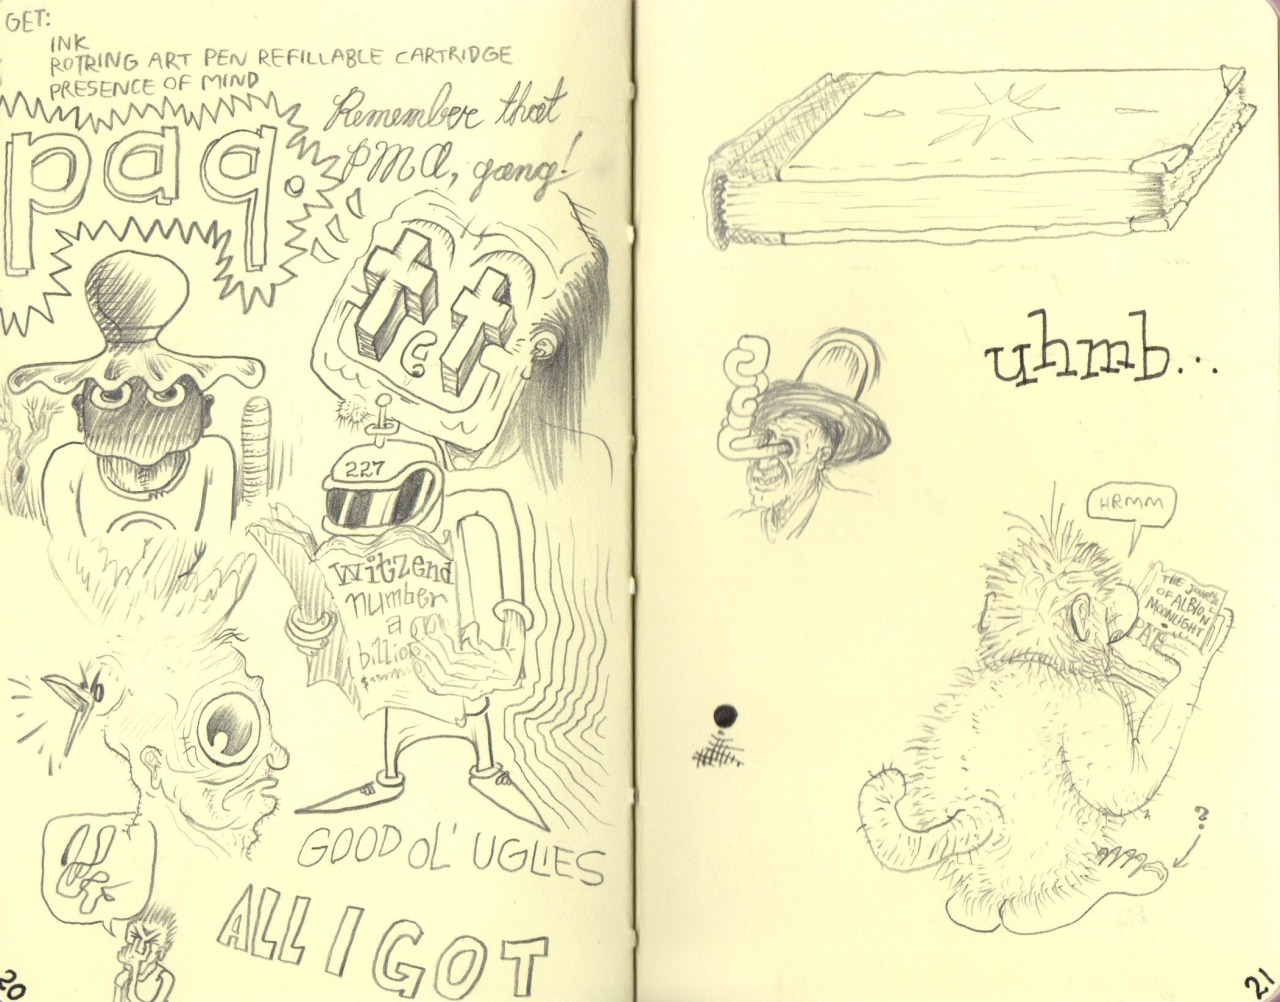 GET:
INK
ROTRING ART PEN REFILLABLE CARTRIDGE
PRESENCE OF MIND
paq.
Remember that
PMA, gang!
227
Witzend
number
a
GOOD OL' UGLIES
ALL I GOT
20
uhmb...
HRMM
THE
OF ALBION
MOONLIGHT
?
21